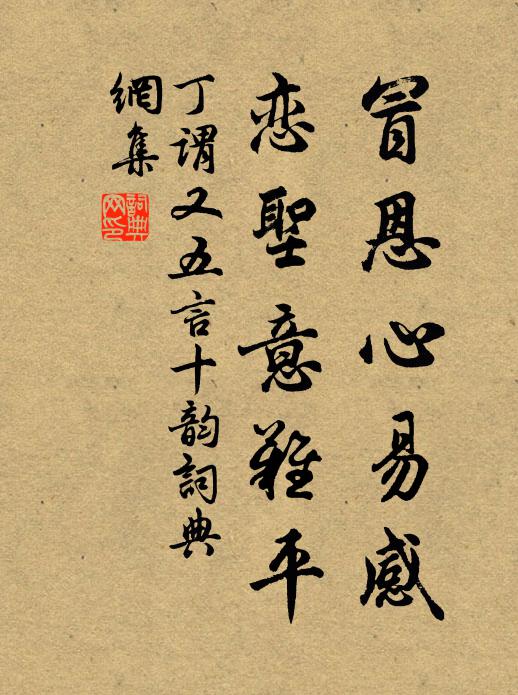 冒恩心易感
恋聖意難平
丁謂又五言十韵詞典
網集
詞典網印